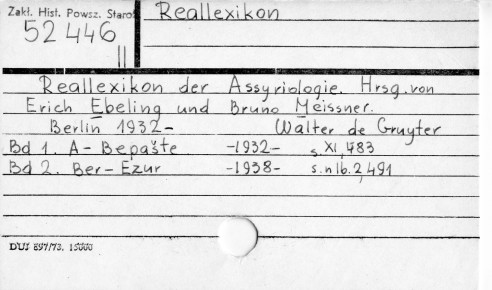 Zakł. Hist. Powsz. Staroż
Reallexikon
52 446
II
Reallexikon der Assyriologie. Hrsg. von
Erich Ebeling und Bruno Meissner.
Berlin 1932- Walter de Gruyter
Bd 1. A - Bepašte -1932- s. XI, 483
Bd 2. Ber - Ezur -1938- s. nlb. 2, 491
DUJ 897/73. 15000